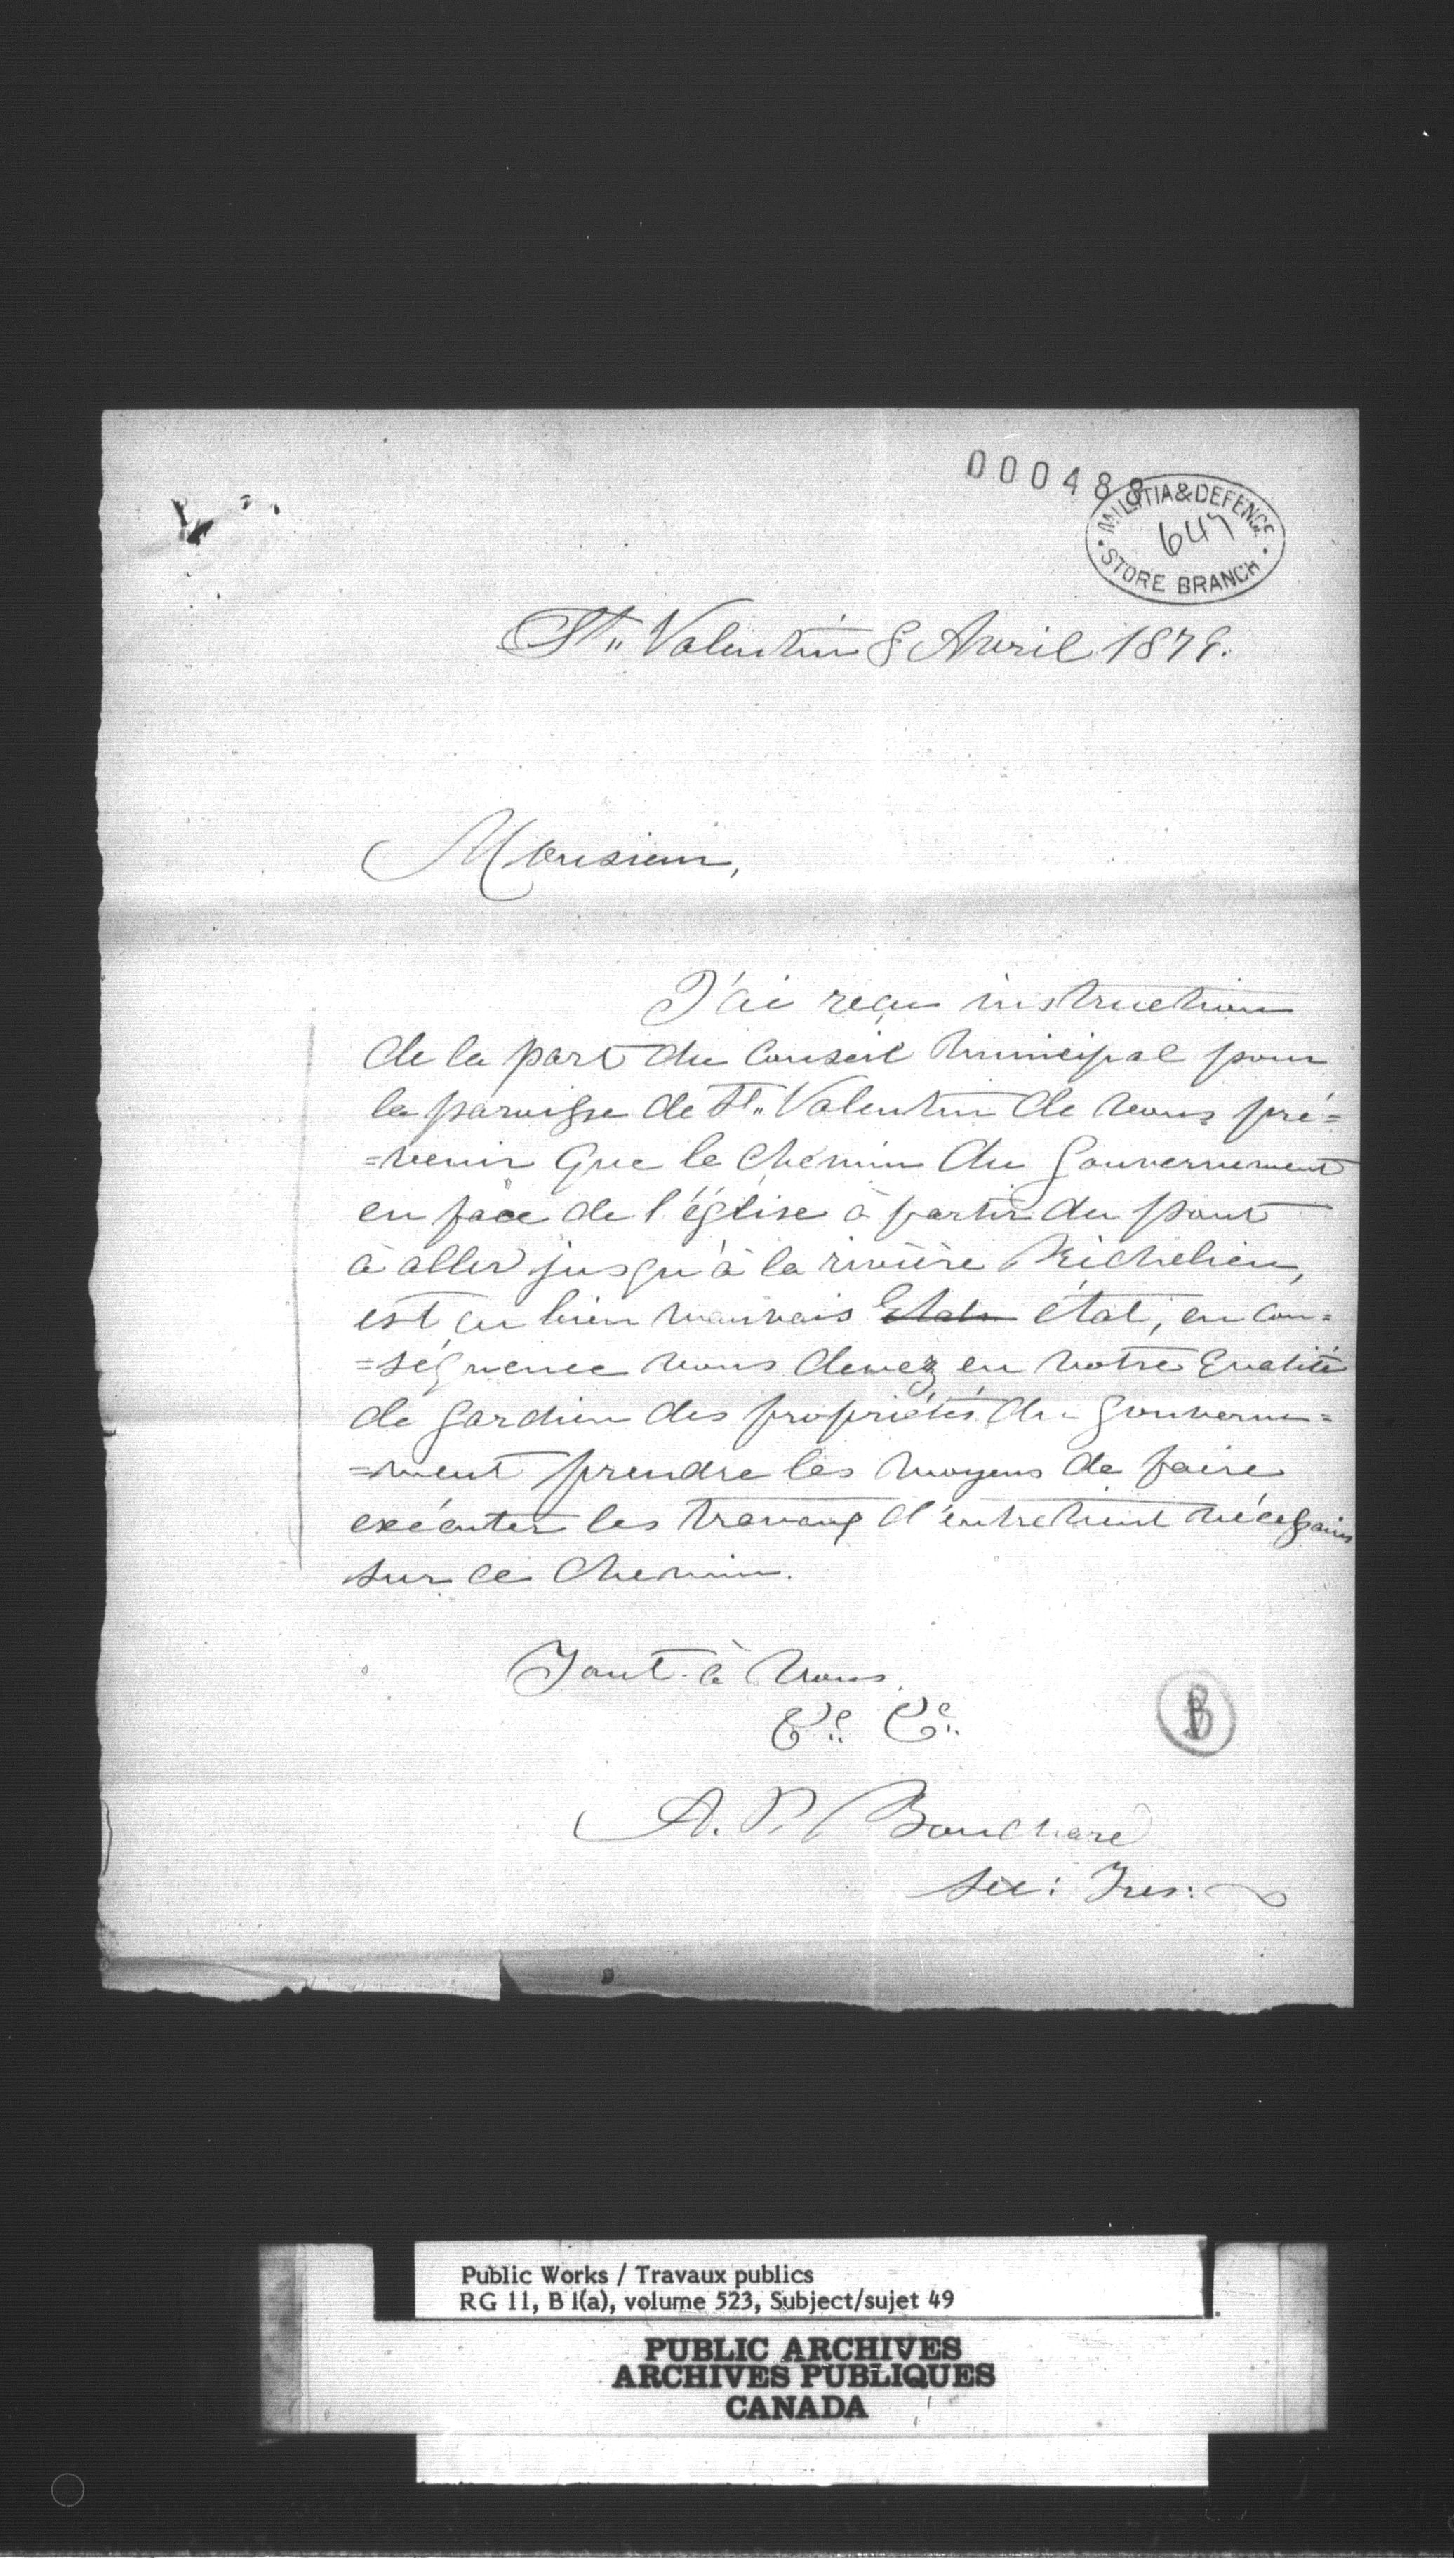 000488
MILITIA & DEFENCE
647
STORE BRANCH
St. Valentin 8 Avril 1879.
Monsieur,
J'ai reçu instruction
de la part du Conseil Municipal pour
la paroisse de St. Valentin de vous pré=
=venir que le chemin du Gouvernement
en face de l'église à partir du pont
à aller jusqu'à la rivière Richelieu,
est en bien mauvais Etat état, en con=
=séquence vous devez en votre qualité
de gardien des propriétés du gouverne=
=ment prendre les moyens de faire
exécuter les travaux d'entretient nécessaires
sur ce chemin.
Tout à vous
&c. &c.
B
A. P. Bouchard
Sec: Tres:
Public Works / Travaux publics
RG 11, B 1(a), volume 523, Subject/sujet 49
PUBLIC ARCHIVES
ARCHIVES PUBLIQUES
CANADA